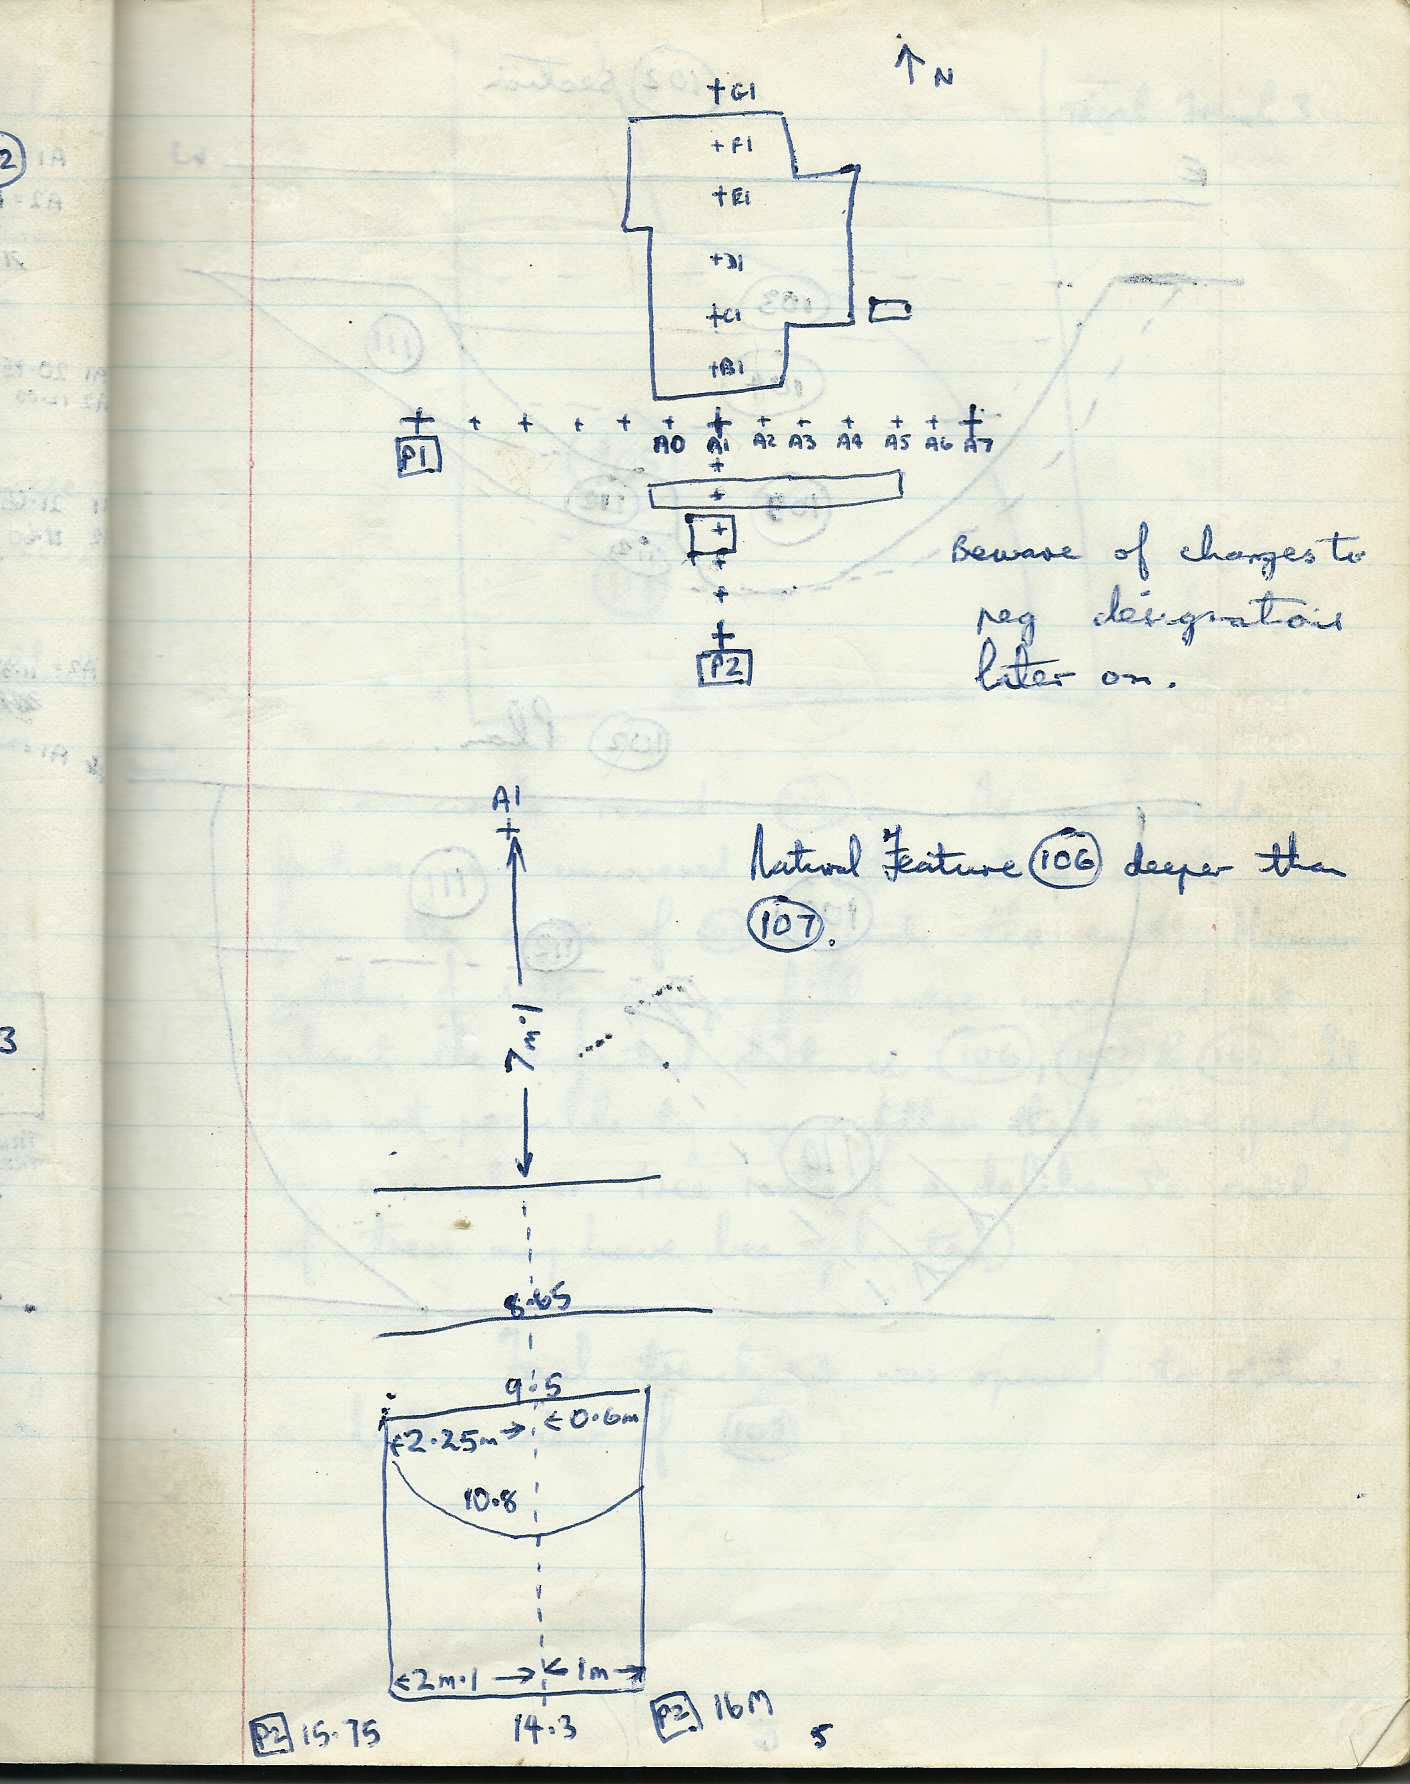 ↑ N
+G1
+F1
+E1
+D1
+C1
+B1
A0 A1 A2 A3 A4 A5 A6 A7
P1
Beware of changes to
peg designations
later on.
P2
A1
Natural Feature 106 deeper than
107.
7m.1
8.65
9.5
2.25m 0.6m
10.8
2m.1 1m
P2 15.75 14.3 P2 16M
5
2
3